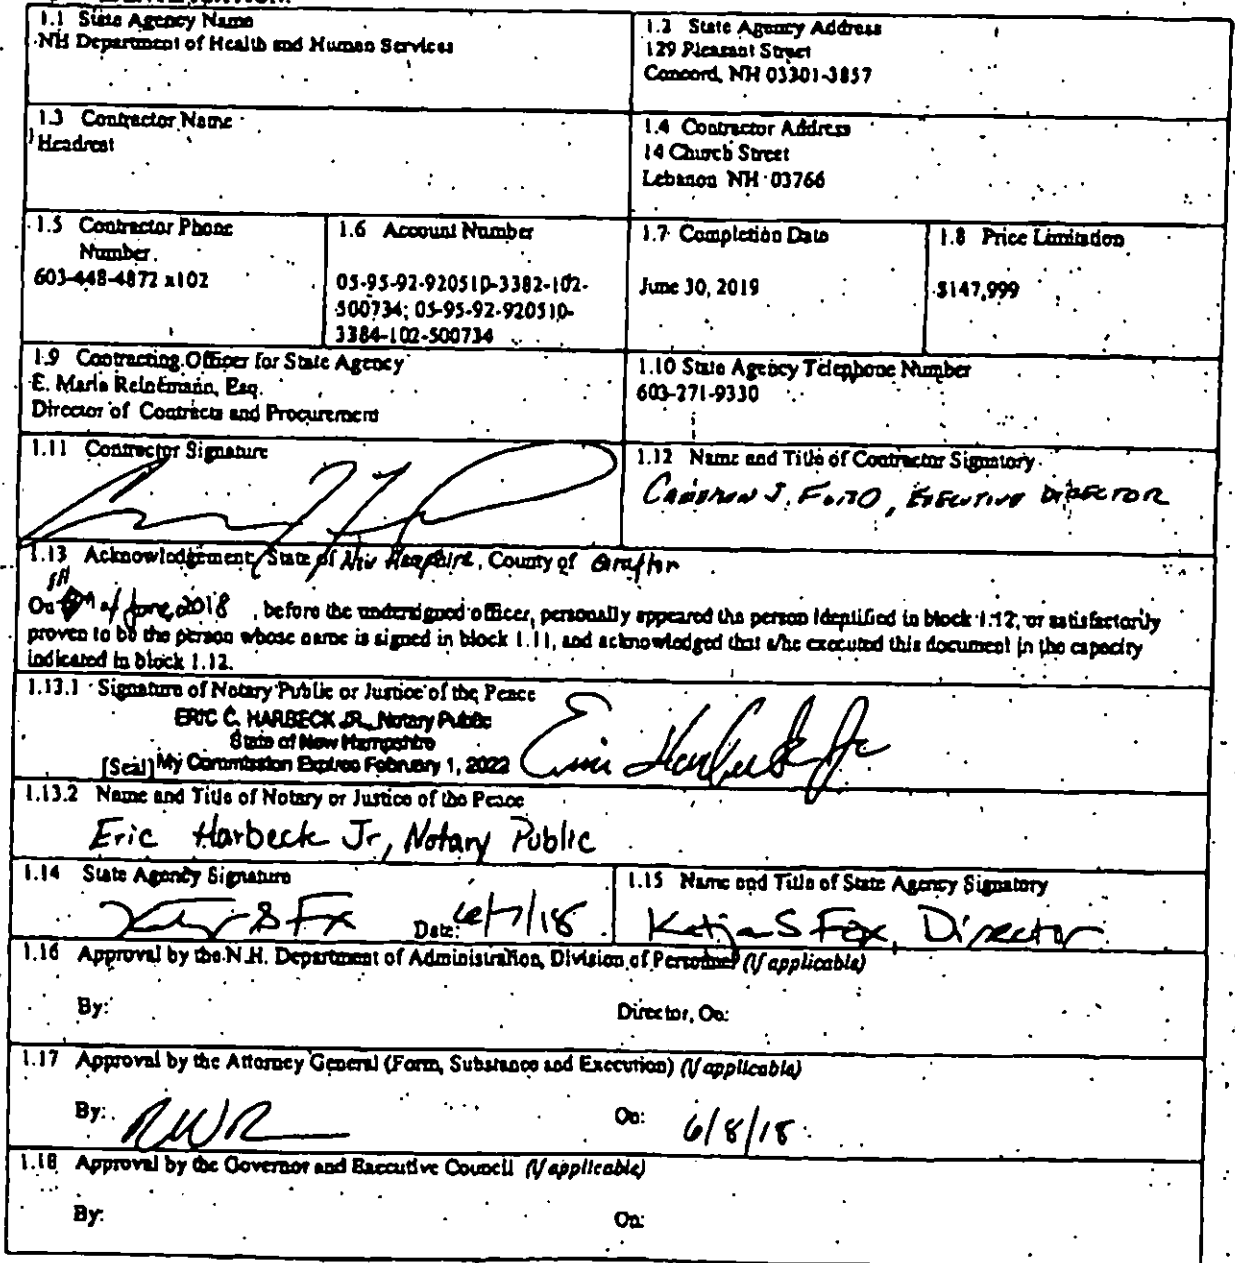 1.1 State Agency Name
NH Department of Health and Human Services
1.2 State Agency Address
129 Pleasant Street
Concord, NH 03301-3857
1.3 Contractor Name
Headrest
1.4 Contractor Address
14 Church Street
Lebanon NH 03766
1.5 Contractor Phone
Number
603-448-4872 x102
1.6 Account Number
05-95-92-920510-3382-102-
500734; 05-95-92-920510-
3384-102-500734
1.7 Completion Date
June 30, 2019
1.8 Price Limitation
$147,999
1.9 Contracting Officer for State Agency
E. Maria Reinemann, Esq.
Director of Contracts and Procurement
1.10 State Agency Telephone Number
603-271-9330
1.11 Contractor Signature
1.12 Name and Title of Contractor Signatory
Cameron J. Ford, Executive Director
1.13 Acknowledgement, State of New Hampshire, County of Grafton
On of June, 2018, before the undersigned officer, personally appeared the person identified in block 1.12, or satisfactorily
proven to be the person whose name is signed in block 1.11, and acknowledged that s/he executed this document in the capacity
indicated in block 1.12.
1.13.1 Signature of Notary Public or Justice of the Peace
ERIC C. HARBECK JR., Notary Public
State of New Hampshire
[Seal] My Commission Expires February 1, 2022
Eric Harbeck Jr
1.13.2 Name and Title of Notary or Justice of the Peace
Eric Harbeck Jr, Notary Public
1.14 State Agency Signature
Date: 6/7/18
1.15 Name and Title of State Agency Signatory
Katja S Fox, Director
1.16 Approval by the N.H. Department of Administration, Division of Personnel (if applicable)
By:
Director, On:
1.17 Approval by the Attorney General (Form, Substance and Execution) (if applicable)
By:
On: 6/8/18
1.18 Approval by the Governor and Executive Council (if applicable)
By:
On: